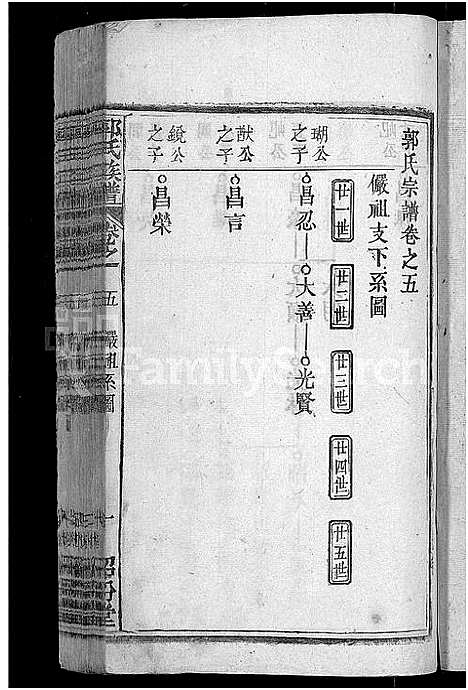 郭氏宗譜卷之五
儼祖支下系圖
廿一世
廿二世
廿三世
廿四世
廿五世
瑚公之子
昌忍
大善
光賢
猷公之子
昌言
鏡公之子
昌榮
郭氏族譜
卷之
五
儼祖系圖
一
FamilySearch